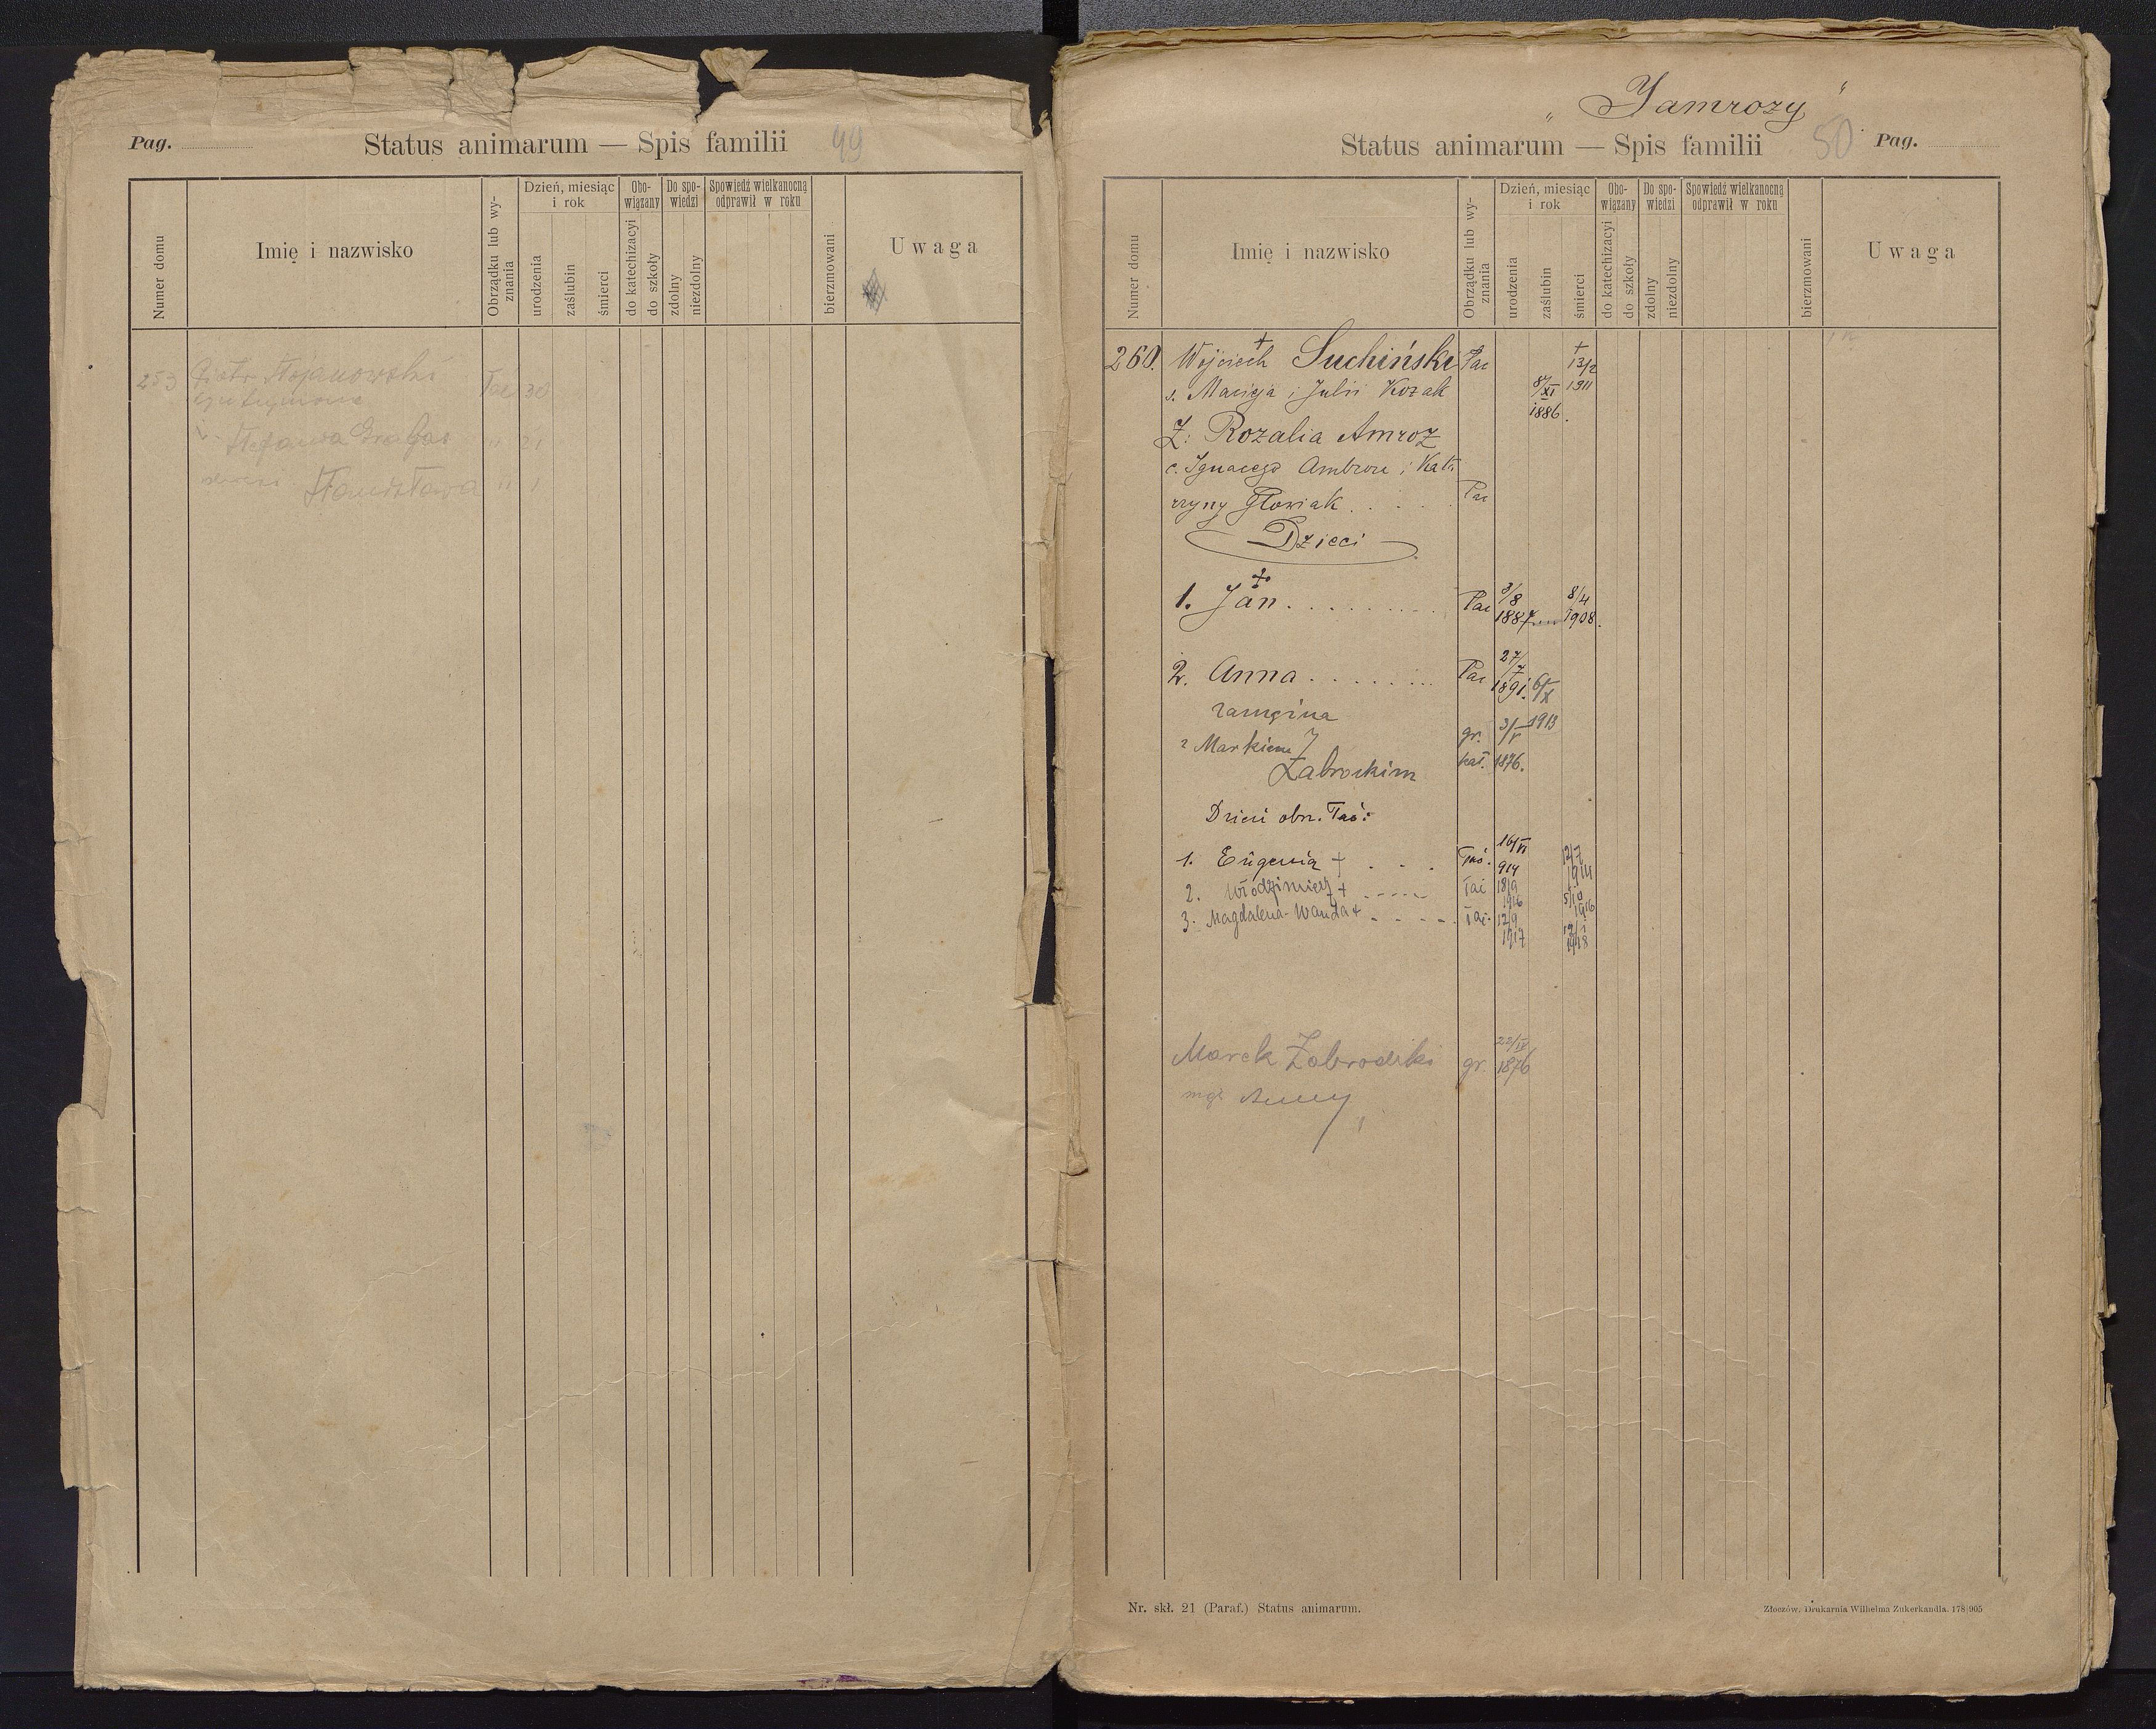 Pag.
Status animarum — Spis familii 49
Numer domu
Imię i nazwisko
Obrządku lub wy-
znania
Dzień, miesiąc
i rok
urodzenia
zaślubin
śmierci
Obo-
wiązany
do katechizacyi
do szkoły
Do spo-
wiedzi
zdolny
niezdolny
Spowiedź wielkanocną
odprawił w roku
bierzmowani
Uwaga
253 Piotr Stojanowski Łac 30
Stefania " 21
Stanisława " 1
„Jamrozy“
Status animarum — Spis familii 50 Pag.
Numer domu
Imię i nazwisko
Obrządku lub wy-
znania
Dzień, miesiąc
i rok
urodzenia
zaślubin
śmierci
Obo-
wiązany
do katechizacyi
do szkoły
Do spo-
wiedzi
zdolny
niezdolny
Spowiedź wielkanocną
odprawił w roku
bierzmowani
Uwaga
260. Wojciech + Suchiński Łac + 13/2
s. Macieja i Julii Kozak 8/XI 1911
1886.
Ż: Rozalia Amroz
c. Ignacego Ambroz i Kata
rzyny Głowiak . . . . . Łac
Dzieci
1. Jan + . . . . . . . . . Łac 3/8 8/4
1887 1908.
2. Anna . . . . . . . Łac 27/7
1891. 6/X
zamężna 1913
z Markiem gr. 3/V
Zabrockim kat. 1876.
Dzieci obrz. Łać:
1. Eugenia + . . . Łać. 16/VI 12/7
914 1914
2. Włodzimierz + Łać 18/9 5/10
1916 1916
3. Magdalena-Wanda + Łać. 12/9
1917 1918
Marek Zabrodzki gr. 22/IV
1876
mąż Anny
Nr. skł. 21 (Paraf.) Status animarum.
Złoczów. Drukarnia Wilhelma Zukerkandla. 178|905